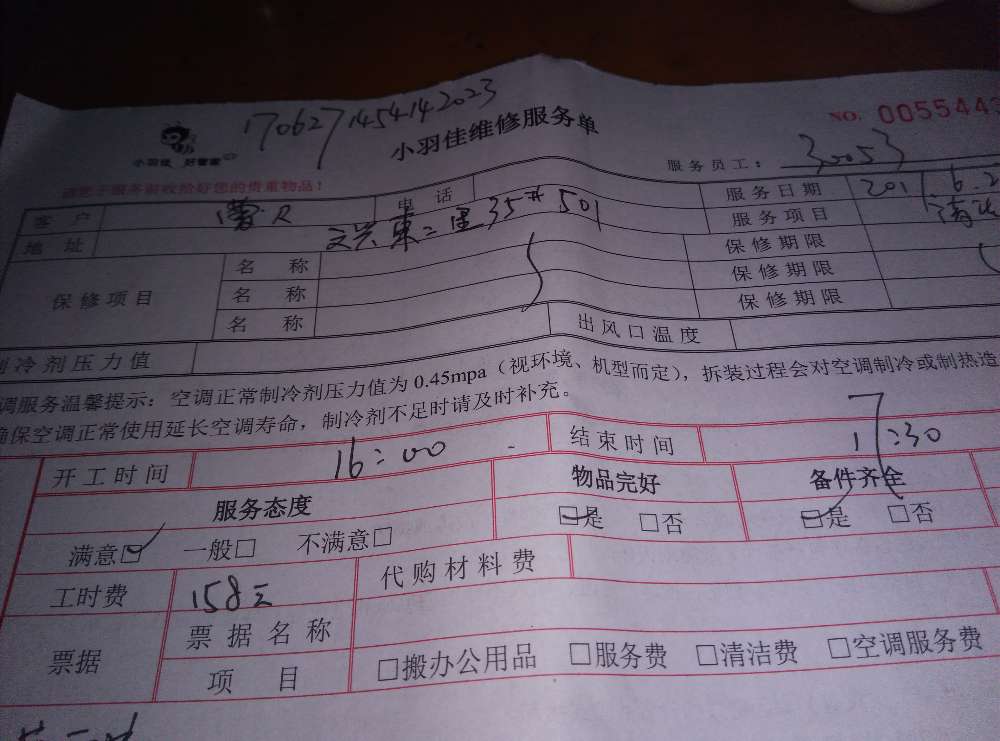 1706271454142023
小羽佳 好管家
小羽佳维修服务单
NO. 0055442
服务员工： 30053
请您于服务前收检好您的贵重物品！
客 户 电 话 服务日期 201 .6.2
地 址 文兴东二里35#501 服务项目 清洗
保修项目 名 称 保修期限
名 称 保修期限
名 称 保修期限
制冷剂压力值 出风口温度
调服务温馨提示：空调正常制冷剂压力值为 0.45mpa（视环境、机型而定），拆装过程会对空调制冷或制热造
确保空调正常使用延长空调寿命，制冷剂不足时请及时补充。
开工时间 16:00 结束时间 17:30
服务态度 物品完好 备件齐全
满意☑ 一般□ 不满意□ ☑是 □否 ☑是 □否
工时费 158元 代购材料费
票据 票 据 名 称
项 目 □搬办公用品 □服务费 □清洁费 □空调服务费